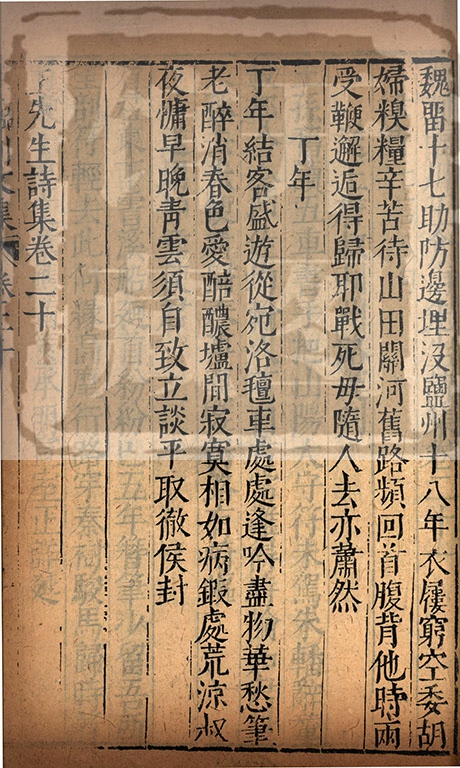 魏畱十七助防邊埋没鹽州十八年衣屨窮空委胡
婦糗糧辛苦待山田關河舊路頻回首腹背他時兩
受鞭邂逅得歸耶戰死毋隨人去亦蕭然
丁年
丁年結客盛遊從宛洛氊車處處逢吟盡物華愁筆
老醉消春色愛醅醲壚間寂寞相如病鍛處荒涼叔
夜慵早晚青雲須自致立談平取徹侯封
先生詩集卷二十